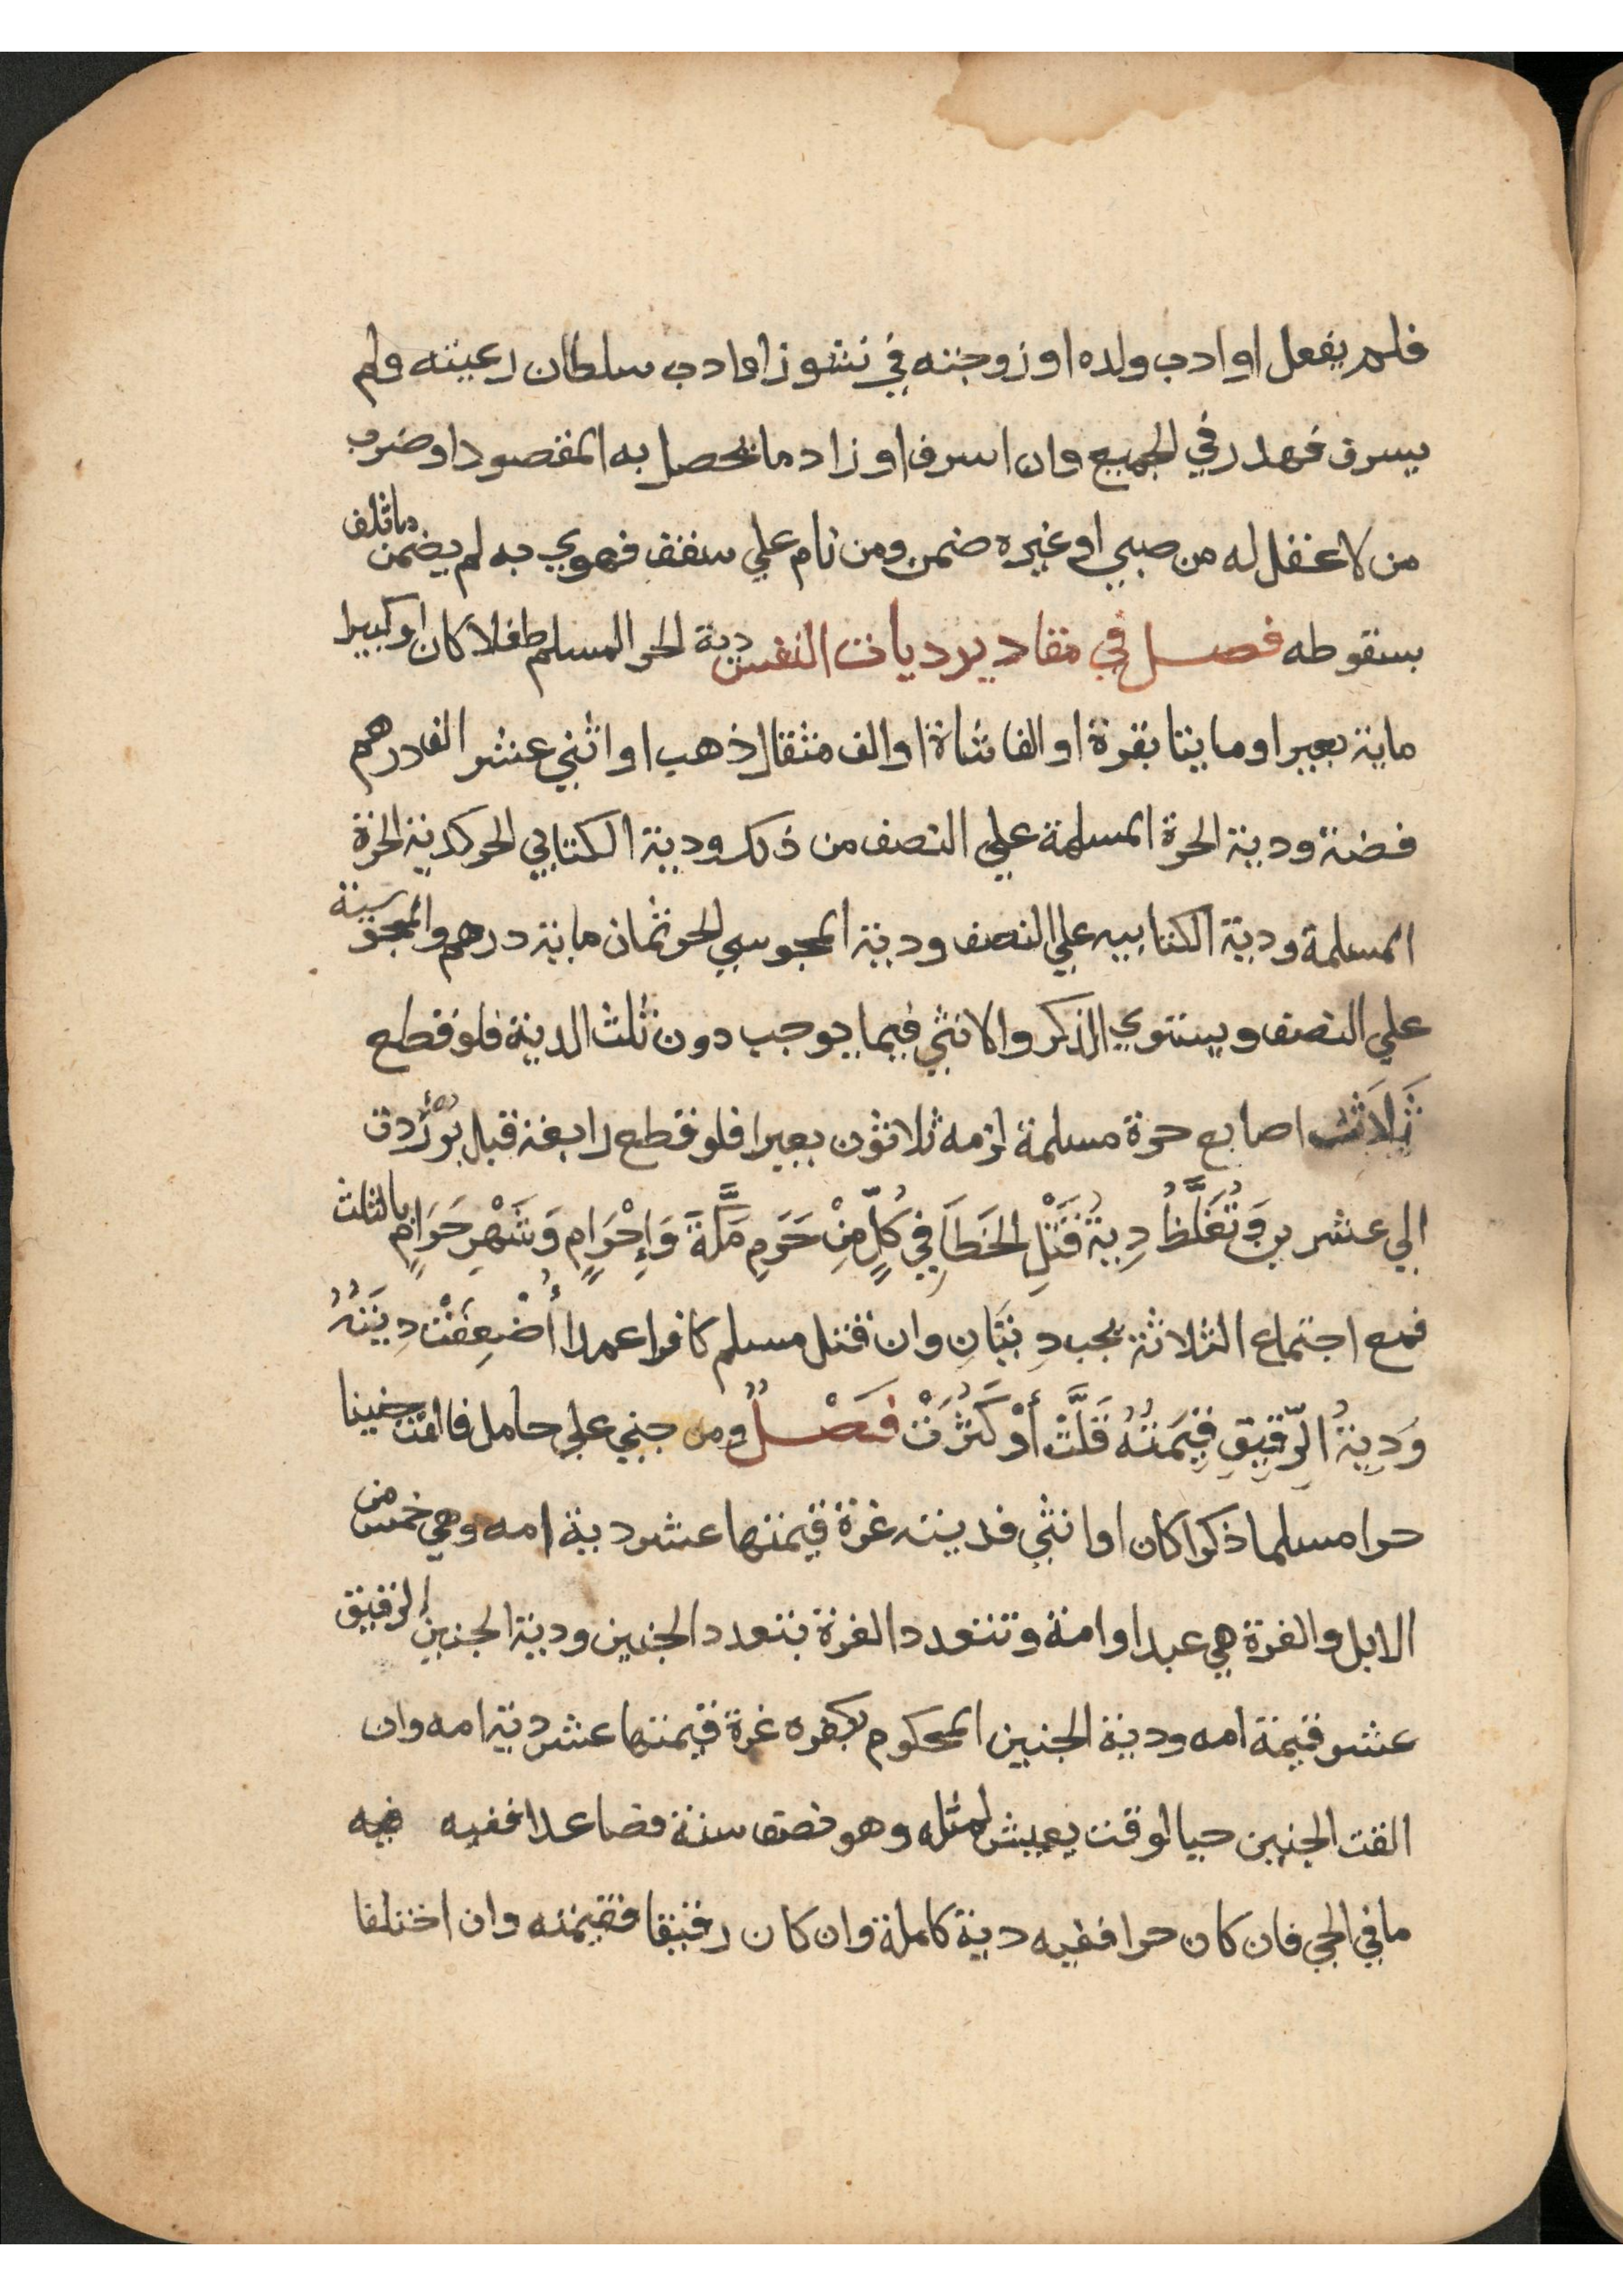 فلم يفعل او ادب ولده او زوجته في نشوز او ادب سلطان رعيته ولم
يسرف فهدر في الجميع وان اسرف او زاد ما يحصل به المقصود او ضرب
من لا عقل له من صبي او غيره ضمن ومن نام علي سقف فهوي به لم يضمن ما تلف
بسقوطه فصل في مقادير ديات النفس دية الحر المسلم طفلا كان او كبيرا
ماية بعير او مايتا بقرة او الفا شاة او الف مثقال ذهب او اثني عشر الف درهم
فضة ودية الحرة المسلمة علي النصف من ذلك ودية الكتابي الحر كدية الحرة
المسلمة ودية الكتابيه علي النصف ودية المجوسي الحر ثمان ماية درهم والمجوسية
علي النصف ويستوي الذكر والانثي فيما يوجب دون ثلث الدية فلو قطع
ثَلَاثَ اصابع حرة مسلمة لزمه ثلاثون بعيرا فلو قطع رابعة قبل بُرْءٍ ردت
الي عشرين وَتُغَلَّظُ دِيةُ قَتْلِ الخَطَأِ في كُلٍّ مِنْ حَرَمِ مَكَّةَ وَإِحْرَامٍ وَشَهْرٍ حَرَامٍ بالثلث
فمع اجتماع الثلاثة يجب دِيَتَانِ وان قتل مسلم كافرا عمدا أُضْعِفَتْ دِيَتُهُ
وَدِيةُ الرّقِيقِ قِيمَتُهُ قَلَّتْ أَوْ كَثُرَتْ فَصْلٌ ومن جني علي حامل فالقت جنينا
حرا مسلما ذكرا كان او انثي فديته غرة قيمتها عشر دية امه وهي خمس من
الابل والغرة هي عبد او امة وتتعدد الغرة بتعدد الجنين ودية الجنين الرقيق
عشر قيمة امه ودية الجنين المحكوم بكفره غرة قيمتها عشر دية امه وان
القت الجنين حيا لوقت يعيش لمثله وهو نصف سنة فصاعدا ففيه فيه
ما في الحي فان كان حرا ففيه دية كاملة وان كان رقيقا فقيمته وان اختلفا